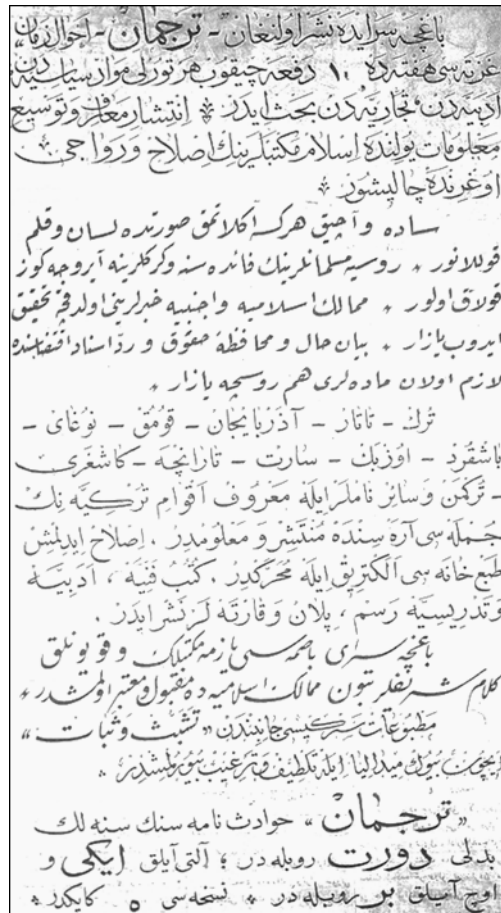 باغچه سرایده نشر اولنغان - ترجمان - احوال زمان
غزته سی هفته ده ١٠ دفعه چیقوب هر تورلی مواد سیاسیه دن
ادبیه دن و تجاریه دن بحث ایدر * انتشار معارف و توسیع
معلومات یولنده اسلام مکتبلرینك اصلاح و رواجی
اوغرنده چالیشور *
ساده و آچیق هرکسه اکلاتمق صورتده لسان و قلم
قوللانور * روسیه مسلمانلرینك فائده سنه و کرکلرینه آیروجه کوز
قولاق اولور * ممالك اسلامیه و اجنبیه خبرلرینی اولدقچه تحقیق
ایدوب یازار * بیان حال و محافظهٔ حقوق و رد اسناد اقتضاسنده
لازم اولان ماده لری هم روسچه یازار *
ترك - تاتار - آذربایجان - قومق - نوغای -
باشقرد - اوزبك - سارت - تارانچه - کاشغری
- ترکمن و سائر ناملر ایله معروف اقوام ترکیه نك
جمله سی آره سنده منتشر و معلومدر . اصلاح ایدلمش
طبع خانه سی الکتریق ایله محرکدر . کتب فنیه ، ادبیه
و تدریسیه رسم ، پلان و قارته لر نشر ایدر .
باغچه سرای باصمه سی یازمه مکتبلك و قویونلق
کلام شریفلر بتون ممالك اسلامیه ده مقبول و معتبر اولمشدر *
مطبوعات سرکیسی جانبندن « تشبث و ثبات »
ایچون بیوك میدالیا ایله تلطیف و ترغیب بیورلمشدر *
« ترجمان » حوادث نامه سنك سنه لك
بدلی دورت روبله در ؛ آلتی آیلق ایکی و
اوچ آیلق بر روبله در * نسخه سی ٥ کاپکدر *